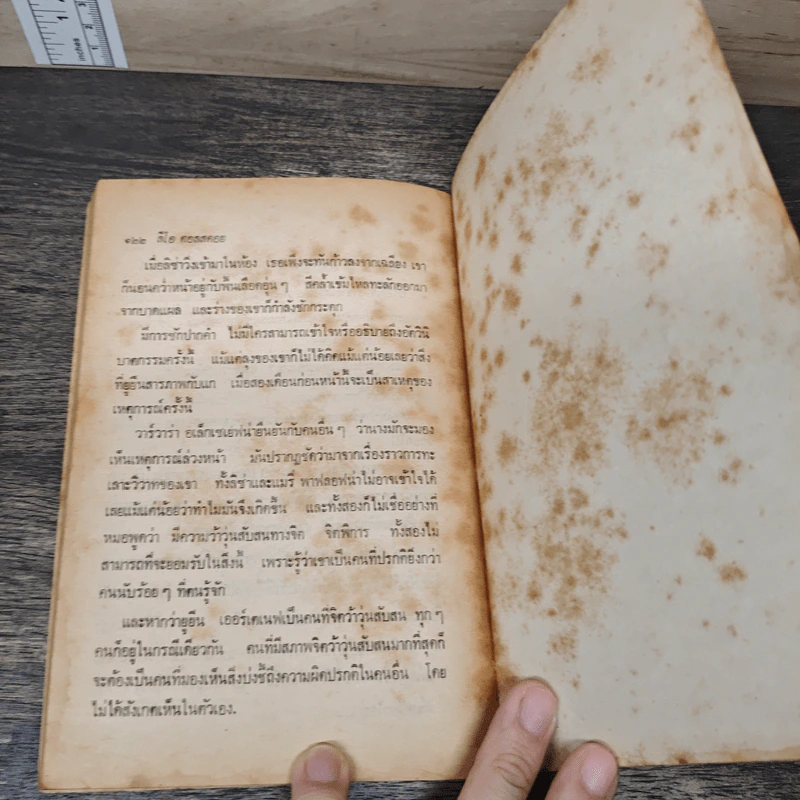 inches
1
1
2
3
๑๒๒ ลีโอ ตอลสตอย
เมื่อลิซ่าวิ่งเข้ามาในห้อง เธอเพิ่งจะทันก้าวลงจากเฉลียง เขา
ก็นอนคว่ำหน้าอยู่กับพื้นเลือดอุ่น ๆ สีคล้ำเข้มไหลทะลักออกมา
จากบาดแผล และร่างของเขาก็กำลังชักกระตุก
มีการซักปากคำ ไม่มีใครสามารถเข้าใจหรืออธิบายถึงอัตวินิ
บาตกรรมครั้งนี้ แม้แต่ลุงของเขาก็ไม่ได้คิดแม้แต่น้อยเลยว่าสิ่ง
ที่ยูยีนสารภาพกับแก เมื่อสองเดือนก่อนหน้านี้จะเป็นสาเหตุของ
เหตุการณ์ครั้งนี้
วาร์วาร่า อเล็กเซเยฟน่ายืนยันกับคนอื่น ๆ ว่านางมักจะมอง
เห็นเหตุการณ์ล่วงหน้า มันปรากฏชัดว่ามาจากเรื่องราวการทะ
เลาะวิวาทของเขา ทั้งลิซ่าและแมรี่ พาฟลอฟน่าไม่อาจเข้าใจได้
เลยแม้แต่น้อยว่าทำไมมันจึงเกิดขึ้น และทั้งสองก็ไม่เชื่ออย่างที่
หมอพูดว่า มีความว้าวุ่นสับสนทางจิต จิตพิการ ทั้งสองไม่
สามารถที่จะยอมรับในสิ่งนี้ เพราะรู้ว่าเขาเป็นคนที่ปรกติยิ่งกว่า
คนนับร้อย ๆ ที่ตนรู้จัก
และหากว่ายูยีน เออร์เตเนฟเป็นคนที่จิตว้าวุ่นสับสน ทุก ๆ
คนก็อยู่ในกรณีเดียวกัน คนที่มีสภาพจิตว้าวุ่นสับสนมากที่สุดก็
จะต้องเป็นคนที่มองเห็นสิ่งบ่งชี้ถึงความผิดปรกติในคนอื่น โดย
ไม่ได้สังเกตเห็นในตัวเอง.